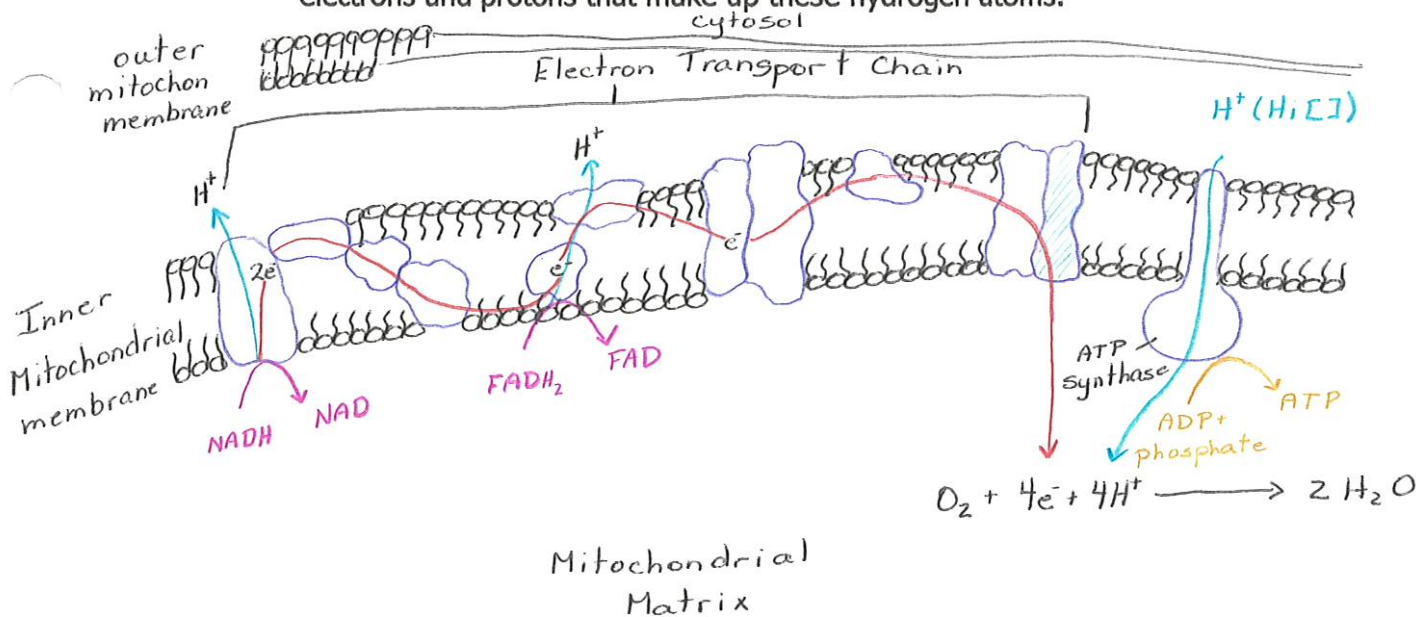 electrons and protons that make up these hydrogen atoms.
cytosol
outer
mitochon
membrane
Electron Transport Chain
H⁺ (Hi [])
H⁺
H⁺
2e⁻
e⁻
e⁻
Inner
Mitochondrial
membrane
NADH
NAD
FADH₂
FAD
ATP
synthase
ADP +
phosphate
ATP
O₂ + 4e⁻ + 4H⁺ → 2 H₂O
Mitochondrial
Matrix